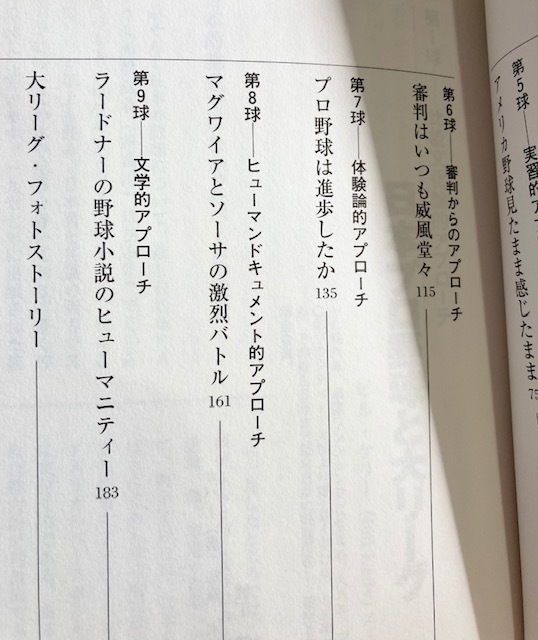 第5球――実習的ア
アメリカ野球見たまま感じたまま
第6球――審判からのアプローチ
審判はいつも威風堂々 115
第7球――体験論的アプローチ
プロ野球は進歩したか 135
第8球――ヒューマンドキュメント的アプローチ
マグワイアとソーサの激烈バトル 161
第9球――文学的アプローチ
ラードナーの野球小説のヒューマニティー 183
大リーグ・フォトストーリー